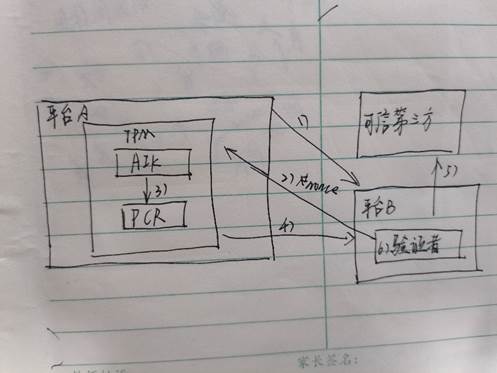 平台A
TPM
AIK
3)
PCR
1)
2) 发nonce
4)
可信第三方
5)
平台B
6)验证者
家长签名: